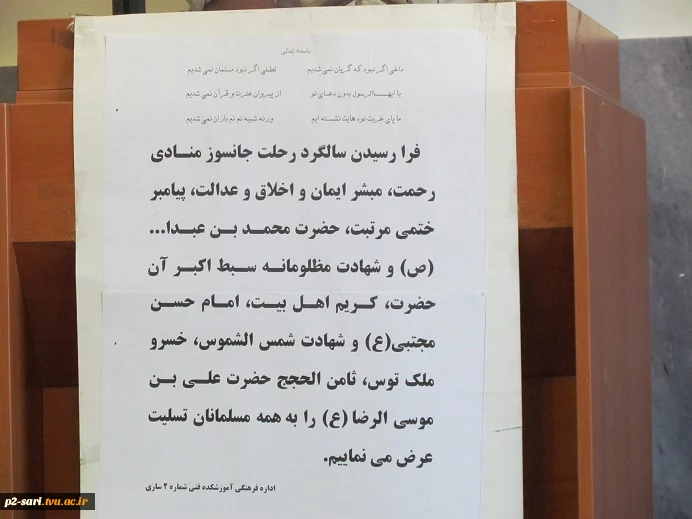 باسمه تعالی
داغی اگر نبود که گریان نمی شدیم لطفی اگر نبود مسلمان نمی شدیم
یا ایهــا الرسول بدون دعـای تو از پیروان عترت و قرآن نمی شدیم
ما پای غربت نوه هایت نشسته ایم ورنه شبیه نم نم باران نمی شدیم
فرا رسیدن سالگرد رحلت جانسوز منـادی
رحمت، مبشر ایمان و اخلاق و عدالت، پیامبر
ختمی مرتبت، حضرت محمـد بـن عبدا...
(ص) و شهادت مظلومانـه سـبط اکبـر آن
حضرت، کـریم اهـل بیـت، امـام حسـن
مجتبی(ع) و شهادت شمس الشموس، خسرو
ملک توس، ثامن الحجج حضرت علـی بـن
موسی الرضا (ع) را به همه مسلمانان تسلیت
عرض می نماییم.
اداره فرهنگی آموزشکده فنی شماره ۲ ساری
p2-sari.tvu.ac.ir